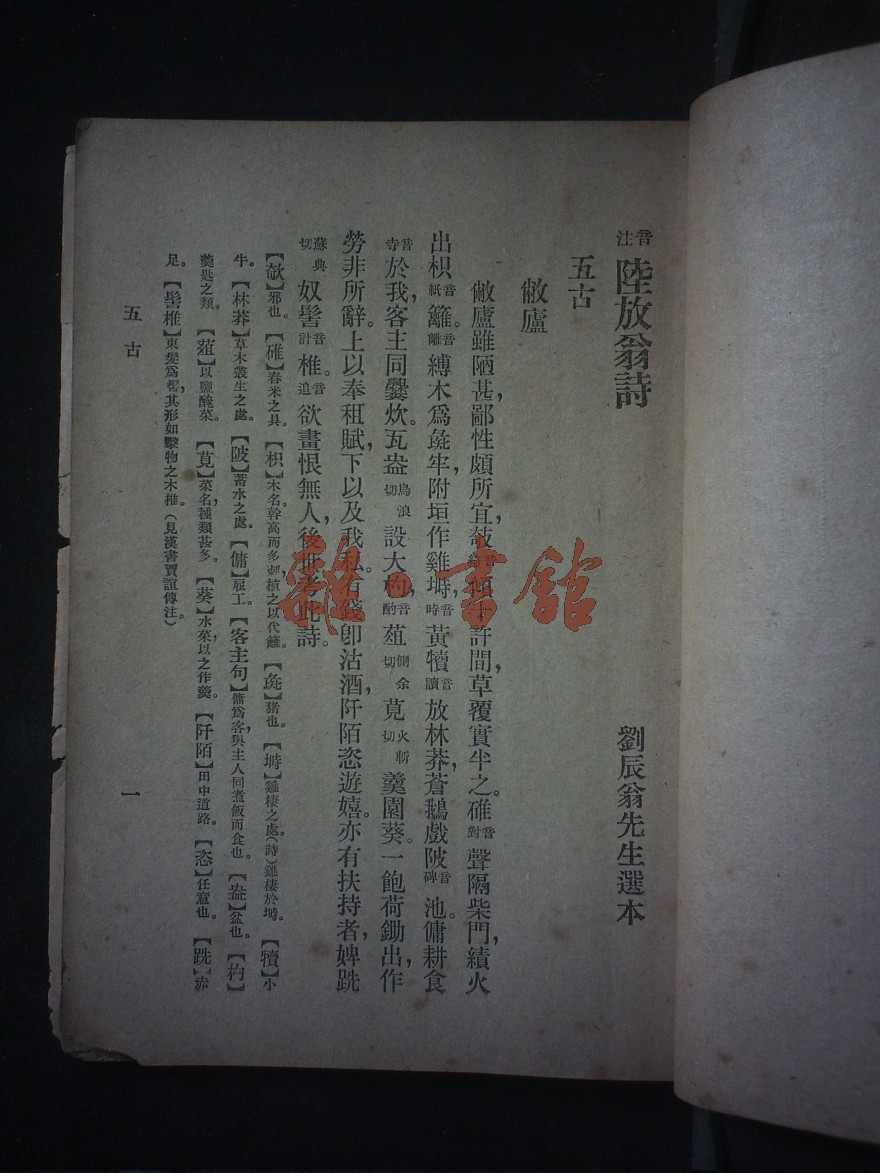 音注 陸放翁詩 劉辰翁先生選本
五古
敝廬
敝廬雖陋甚，鄙性頗所宜，欹 傾十許間，草覆實半之。碓音對聲隔柴門，績火
出枳音紙籬。音離縛木爲彘牢，附垣作雞塒，音時黃犢音讀放林莽，蒼鵝戲陂音碑池。傭耕食
音寺於我，客主同爨炊。瓦盎烏浪切設大杓，音酌菹側余切莧火斬切羹園葵。一飽荷鋤出，作
勞非所辭。上以奉租賦，下以及我私。有錢卽沽酒，阡陌恣遊嬉。亦有扶持者，婢跣
蘇典切奴髻音計椎。音追欲畫恨無人，後世考此詩。
【欹】邪也。【碓】舂米之具。【枳】木名，幹高而多刺，植之以代籬。【彘】豬也。【塒】雞棲之處。（詩）雞棲於塒。【犢】小
牛。【林莽】草木叢生之處。【陂】蓄水之處。【傭】雇工。【客主句】傭爲客，與主人同煮飯而食也。【盎】盆也。【杓】
羹匙之類。【菹】以鹽醃菜。【莧】菜名，種類甚多。【葵】水菜，以之作羹。【阡陌】田中道路。【恣】任意也。【跣】赤
足。【髻椎】束髮爲髻，其形如擊物之木椎。（見漢書賈誼傳注）
五古 一
雜·書館